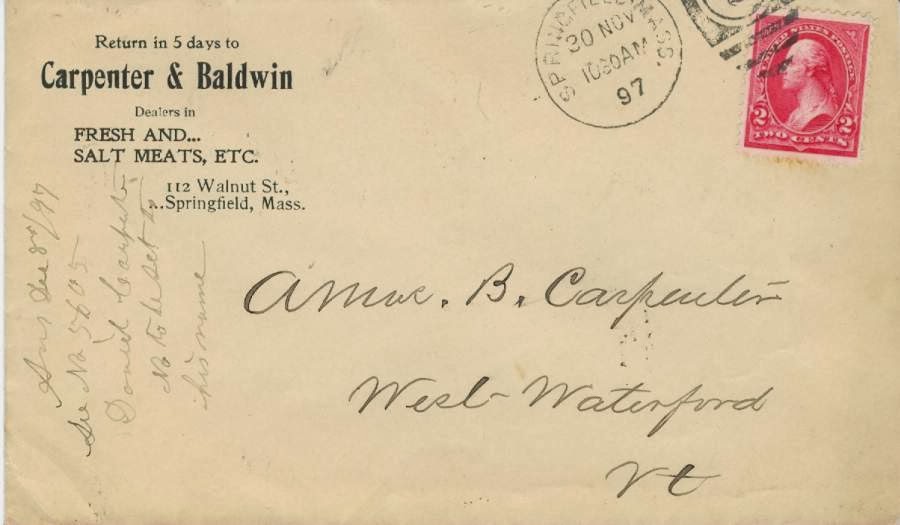 Return in 5 days to
Carpenter & Baldwin
Dealers in
FRESH AND...
SALT MEATS, ETC.
112 Walnut St.,
...Springfield, Mass.
SPRINGFIELD, MASS.
30 NOV
1030AM
97
UNITED STATES POSTAGE
2 2
TWO CENTS
Amos. B. Carpenter
West-Waterford
Vt
Ans Dec 20/97
See No 5605
Daniel Carpenter
No to be set to
his name